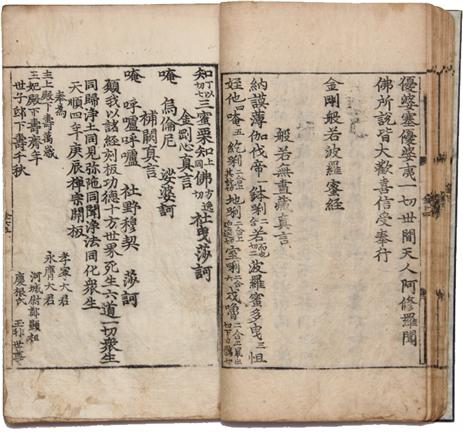 優婆塞優婆夷一切世間天人阿修羅聞
佛所說皆大歡喜信受奉行
金剛般若波羅蜜經
般若無盡藏真言
納謨薄伽伐帝一鉢剌二合若二波羅蜜多曳三怛
姪他四唵五紇剌二合地剌二合室剌二合戍嚕
知三蜜栗知佛社曳莎訶
金剛心真言
唵 烏倫尼 娑婆訶
補闕真言
唵 呼嚧呼嚧 社野穆契 莎訶
願我以諸經刻板功德十方世界死生六道一切衆生
同歸净土同見弥陁同聞净法同化衆生
天順四年庚辰禪宗開板
奉爲
主上殿下壽萬歲
王妃殿下壽齊年
世子邸下壽千秋
孝寧大君
永膺大君
河城尉鄭顯祖